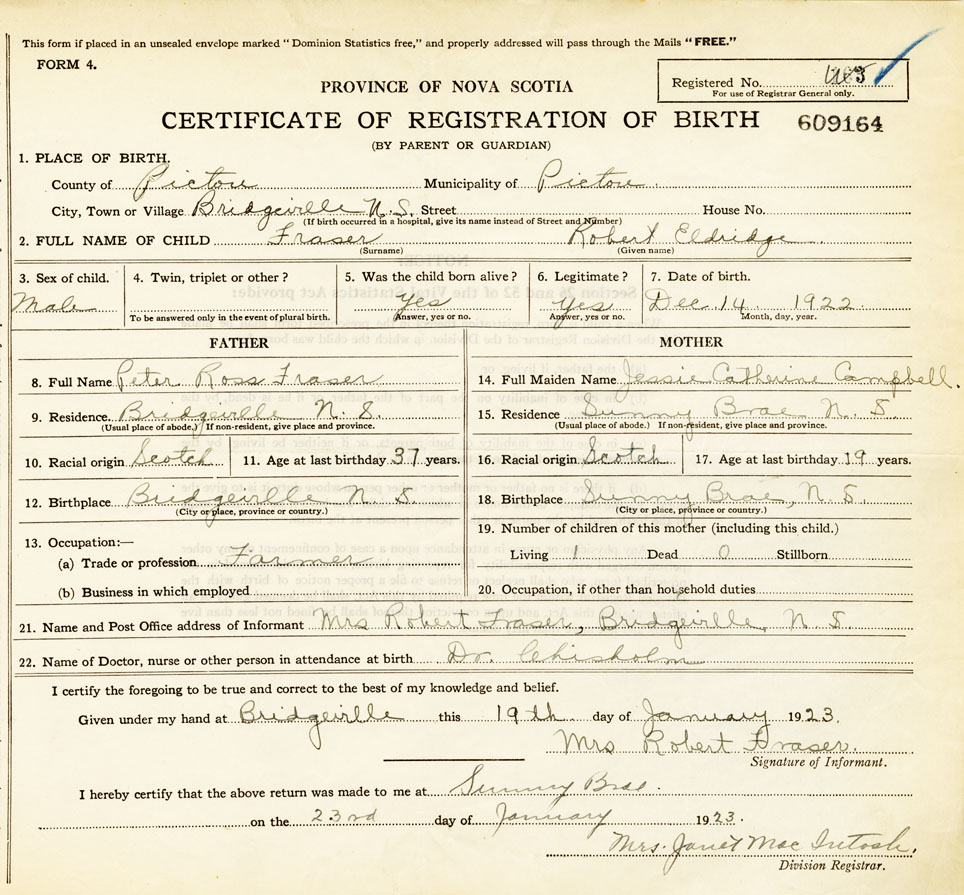 This form if placed in an unsealed envelope marked "Dominion Statistics free," and properly addressed will pass through the Mails "FREE."
FORM 4.
Registered No.
For use of Registrar General only.
PROVINCE OF NOVA SCOTIA
CERTIFICATE OF REGISTRATION OF BIRTH 609164
(BY PARENT OR GUARDIAN)
1. PLACE OF BIRTH.
County of Pictou Municipality of Pictou
City, Town or Village Bridgeville N.S. Street House No.
(If birth occurred in a hospital, give its name instead of Street and Number)
2. FULL NAME OF CHILD Fraser Robert Eldridge
(Surname) (Given name)
3. Sex of child. 4. Twin, triplet or other? 5. Was the child born alive? 6. Legitimate? 7. Date of birth.
Male yes yes Dec. 14. 1922
To be answered only in the event of plural birth. Answer, yes or no. Answer, yes or no. Month, day, year.
FATHER MOTHER
8. Full Name Peter Ross Fraser 14. Full Maiden Name Jessie Catherine Campbell.
9. Residence. Bridgeville N. S. 15. Residence Sunny Brae N. S.
(Usual place of abode.) If non-resident, give place and province. (Usual place of abode.) If non-resident, give place and province.
10. Racial origin Scotch 11. Age at last birthday 37 years. 16. Racial origin Scotch 17. Age at last birthday 19 years.
12. Birthplace Bridgeville N. S. 18. Birthplace Sunny Brae, N. S.
(City or place, province or country.) (City or place, province or country.)
19. Number of children of this mother (including this child.)
13. Occupation:—
Living 1 Dead 0 Stillborn
(a) Trade or profession Farmer
(b) Business in which employed 20. Occupation, if other than household duties
21. Name and Post Office address of Informant Mrs Robert Fraser, Bridgeville, N. S.
22. Name of Doctor, nurse or other person in attendance at birth Dr. Chisholm
I certify the foregoing to be true and correct to the best of my knowledge and belief.
Given under my hand at Bridgeville this 19th day of January 1923.
Mrs Robert Fraser.
Signature of Informant.
I hereby certify that the above return was made to me at Sunny Brae.
on the 23rd day of January 1923.
Mrs. Janet Mac Intosh.
Division Registrar.